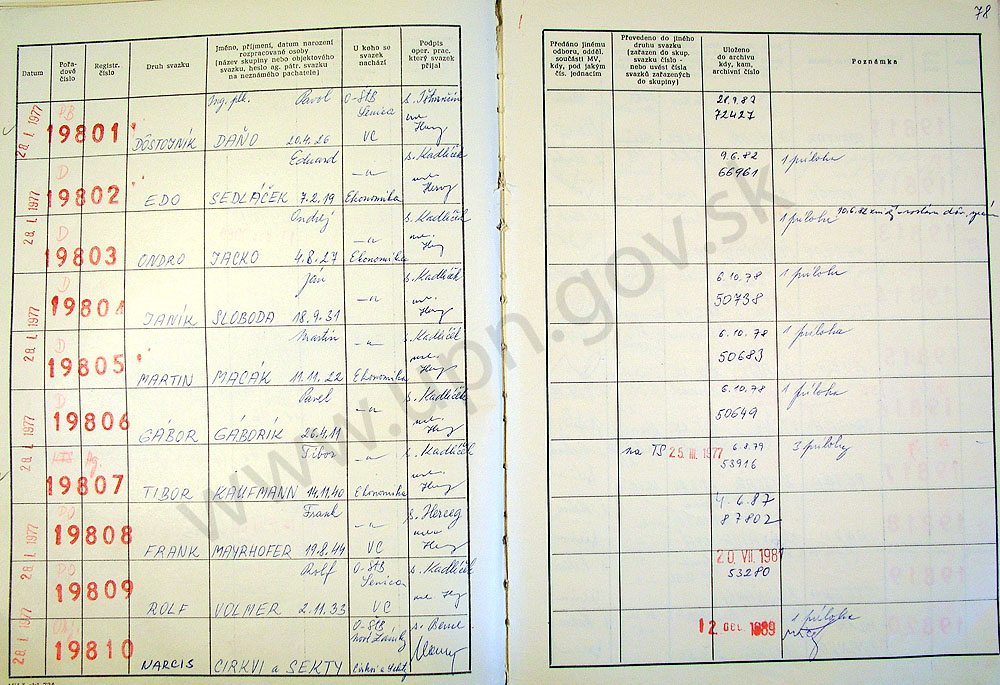 78
Datum
Pořadové číslo
Registr. číslo
Druh svazku
Jméno, příjmení, datum narození
rozpracované osoby
(název skupiny nebo objektového
svazku, heslo ag. pátr. svazku
na neznámého pachatele)
U koho se
svazek
nachází
Podpis
oper. prac.
který svazek
přijal
Předáno jinému
odboru, odděl.
součásti MV,
kdy, pod jakým
čís. jednacím
Převedeno do jiného
druhu svazku
(zařazen do skup.
svazku číslo -
nebo uvést čísla
svazků zařazených
do skupiny)
Uloženo
do archivu
kdy, kam,
archivní číslo
Poznámka
28. I. 1977
PB
19801
DÔSTOJNÍK
Ing. plk. Pavol
DAŇO 20.4.26
O-ŠtB
Senica
VC
72427
D
19802
EDO
Eduard
SEDLÁČEK 7.2.19
-"-
Ekonomika
s. Kadlíček
9.6.82
66961
1 príloha
28. I. 1977
D
19803
ONDRO
Ondrej
JACKO 4.8.27
-"-
Ekonomika
s. Kadlíček
1 príloha
D
19804
JANÍK
Ján
SLOBODA 18.9.31
-"-
s. Kadlíček
6.10.78
50738
1 príloha
28. I. 1977
D
19805
MARTIN
Martin
MACÁK 11.11.22
-"-
Ekonomika
s. Kadlíček
6.10.78
50683
1 príloha
D
19806
GÁBOR
Pavel
GÁBORÍK 26.4.11
-"-
s. Kadlíček
6.10.78
50649
1 príloha
28. I. 1977
Ag.
19807
TIBOR
Tibor
KAUFMANN 14.11.40
-"-
Ekonomika
s. Kadlíček
na TS 25. III. 1977
6.8.79
53916
3 prílohy
28. I. 1977
PO
19808
FRANK
Frank
MAYRHOFER 19.8.44
-"-
VC
s. Herceg
4.6.87
87802
28. I. 1977
PO
19809
ROLF
Rolf
VOLMER 2.11.33
O-ŠtB
Senica
VC
s. Kadlíček
20. VII. 1981
53280
28. I. 1977
19810
NARCIS
CIRKVI a SEKTY
O-ŠtB
Nové Zámky
Cirkvi a sekty
12. 1989
1 príloha
www.upn.gov.sk